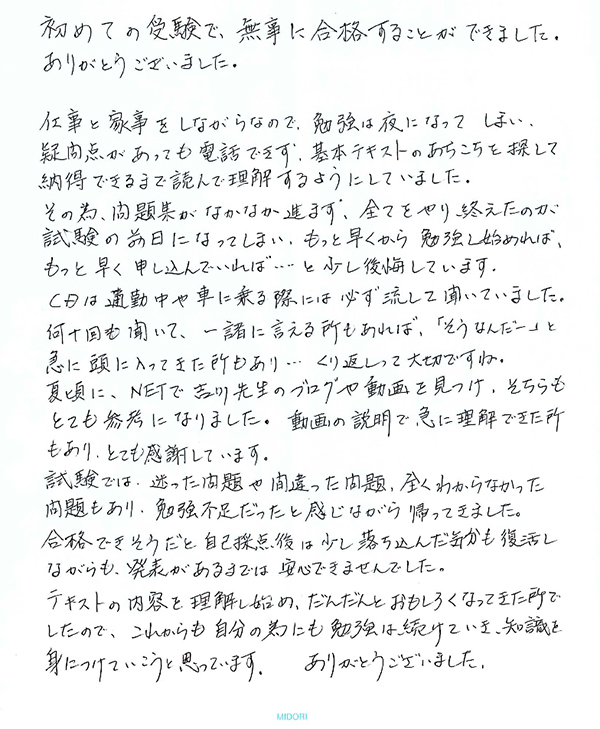 初めての受験で、無事に合格することができました。
ありがとうございました。
仕事と家事をしながらなので、勉強は夜になってしまい、
疑問点があっても電話できず、基本テキストのあちこちを探して
納得できるまで読んで理解するようにしていました。
その為、問題集がなかなか進まず、全てをやり終えたのが
試験の前日になってしまい、もっと早くから勉強し始めれば、
もっと早く申し込んでいれば…と少し後悔しています。
CDは通勤中や車に乗る際には必ず流して聞いていました。
何十回も聞いて、一諸に言える所もあれば、「そうなんだー」と
急に頭に入ってきた所もあり…くり返しって大切ですね。
夏頃に、NETで吉川先生のブログや動画を見つけ、そちらも
とても参考になりました。動画の説明で急に理解できた所
もあり、とても感謝しています。
試験では、迷った問題や間違った問題、全くわからなかった
問題もあり、勉強不足だったと感じながら帰ってきました。
合格できそうだと自己採点後は少し落ち込んだ気分も復活し
ながらも、発表があるまでは安心できませんでした。
テキストの内容を理解し始め、だんだんとおもしろくなってきた所で
したので、これからも自分の為にも勉強は続けていき、知識を
身につけていこうと思っています。 ありがとうございました。
MIDORI